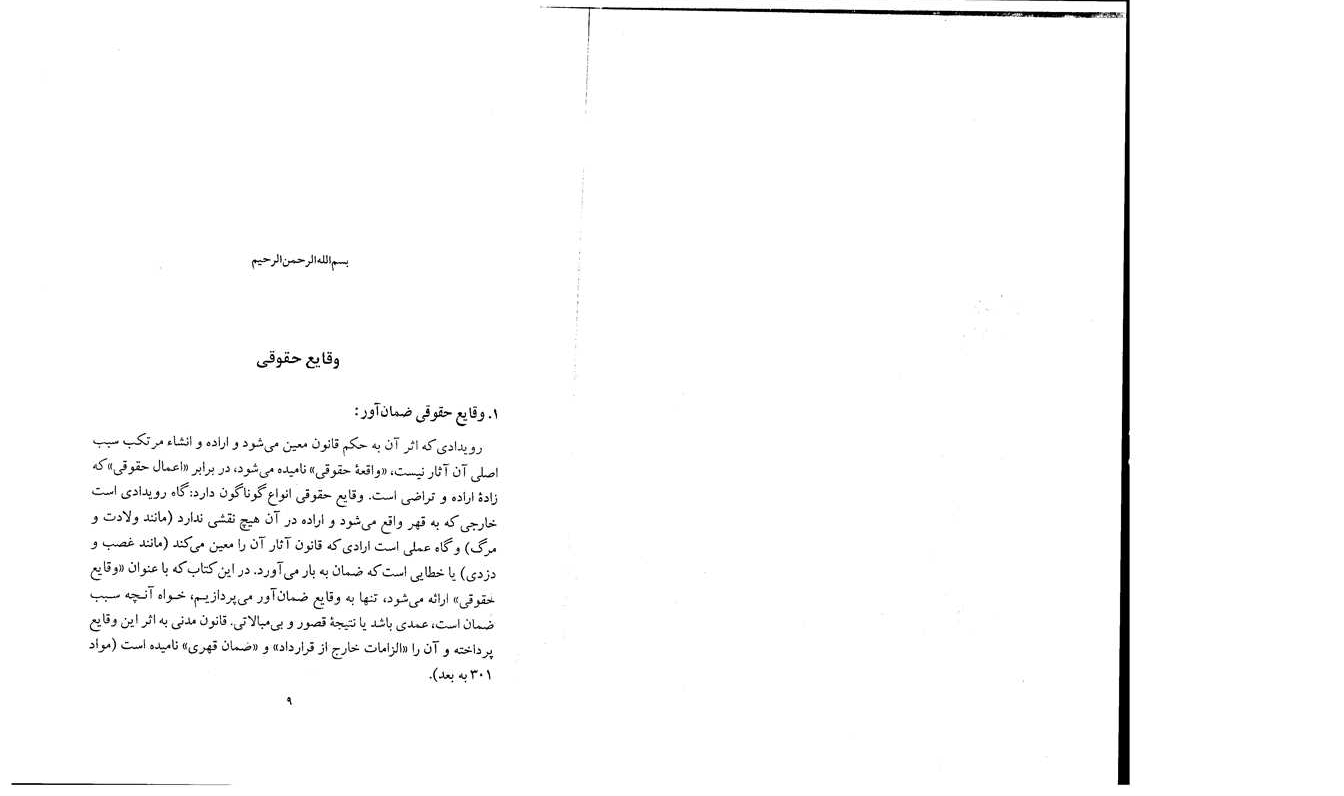 بسم‌الله‌الرحمن‌الرحیم
وقایع حقوقی
۱. وقایع حقوقی ضمان‌آور:
رویدادی که اثر آن به حکم قانون معین می‌شود و اراده و انشاء مرتکب سبب
اصلی آن آثار نیست، «واقعهٔ حقوقی» نامیده می‌شود، در برابر «اعمال حقوقی» که
زادهٔ اراده و تراضی است. وقایع حقوقی انواع گوناگون دارد: گاه رویدادی است
خارجی که به قهر واقع می‌شود و اراده در آن هیچ نقشی ندارد (مانند ولادت و
مرگ) و گاه عملی است ارادی که قانون آثار آن را معین می‌کند (مانند غصب و
دزدی) یا خطایی است که ضمان به بار می‌آورد. در این کتاب که با عنوان «وقایع
حقوقی» ارائه می‌شود، تنها به وقایع ضمان‌آور می‌پردازیم، خواه آنچه سبب
ضمان است، عمدی باشد یا نتیجهٔ قصور و بی‌مبالاتی. قانون مدنی به اثر این وقایع
پرداخته و آن را «الزامات خارج از قرارداد» و «ضمان قهری» نامیده است (مواد
۳۰۱ به بعد).
۹